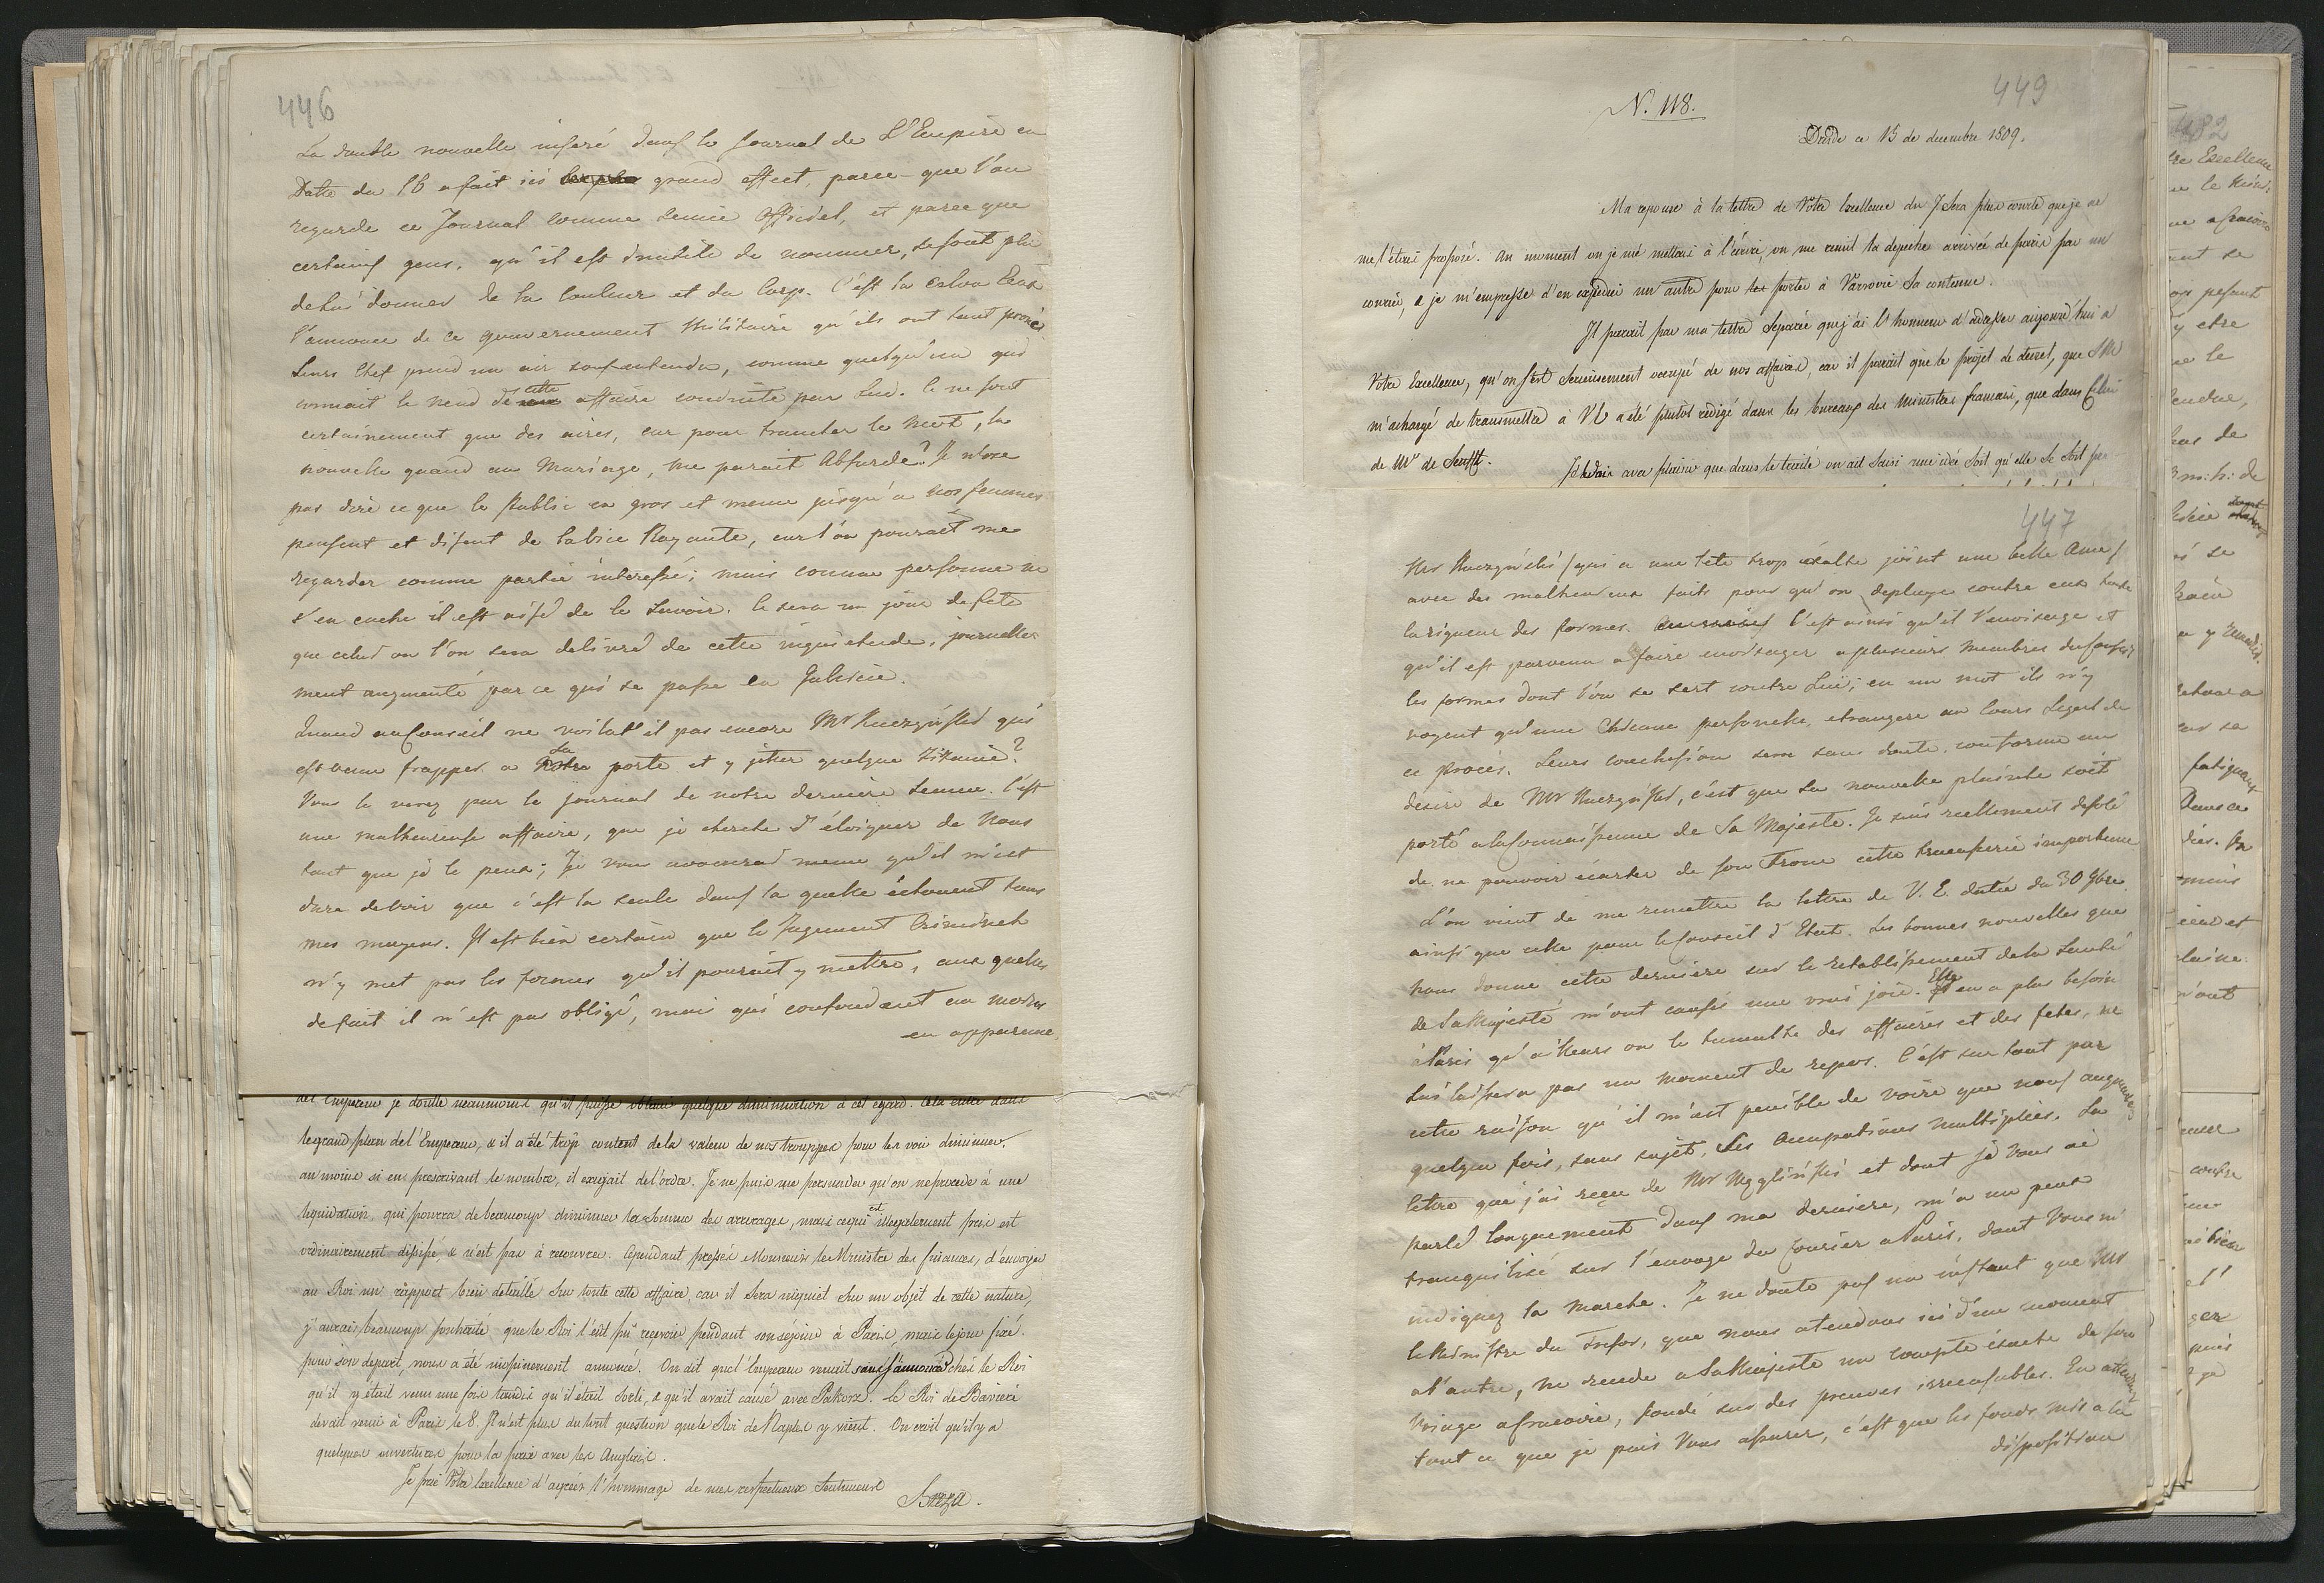 446
La double nouvelle inseré dans le Journal de L'Empire en
Datte du 16 a fait ici grand effect, parce-que l'on
regarde ce Journal comme semie Officiel, et parce que
certains gens, qu'il est inutile de nommer, se font plai
de lui donner de la Couleur et du Corp. C'est
l'annonce de ce gouvernement Militaire qu'ils ont tant proné;
Leurs Chef prend un air sousentendu, comme quelqu'un qui
connait le neud de cette affaire conduite par Lui. Ce ne sont
certainement que des aires, car pour trancher le mot, la
nouvelle quand au Mariage, me parait Absurde? Je n'ose
pas dire ce que le Public en gros et meme jusqu'a nos femmes
pensent et disent de labice Rayante, car l'on pourait me
regarder comme partie interessé; mais comme personne ne
s'en cache il est aisé de le savoir. Ce sera un jour de fete
que celui ou l'on sera delivré de cette inquietude, journelle
ment augmenté par ce qui se passe en Galicie.
Quand au Conseil ne voilat'il pas encore Mr Kuczyński qui
est venu frapper a Sa porte et y jetter quelque Zizanie?
Vous le verez par le journal de notre derniere seance. C'est
une malheureuse affaire, que je cherche d'éloigner de Nous
tant que je le peux; Je vous avouerai meme qu'il m'est
dure de voir que c'est la seule dans la quelle échouent tous
mes moyens. Il est bien certain que le Jugement Criminel
n'y met pas les formes qu'il pourait y mettre, aux quelles
de fait il n'est pas obligé, mais qui confondraient au moins
en apparence
del'Empereur je doutte neanmoins qu'il puisse obtenir quelque diminution à cet egard. Cela entre dans
le grand plan de l'Empereur, & il a été trop content de la valeur de nos trouppes pour les voir diminuer.
au moins si en prescrivant le nombre, il exigait de l'ordre. Je ne puis me persuader qu'on ne procede à une
liquidation, qui pourra de beaucoup diminuer la somme des arrerages, mais ce qui est illegalement pris est
ordinairement dissipé, & n'est pas à recouvrer. Cependant pressés Monsieur le Ministre des finances, d'envoyer
au Roi un rapport bien detaillé sur toute cette affaire, car il sera inquiet sur un objet de cette nature,
j'aurais beaucoup souhaité que le Roi l'eut pû recevoir pendant son sejour à Paris, mais le jour fixé
pour son depart, nous a été inopinement annoncé. On dit que l'Empereur venait sans s'annoncer chés le Roi
qu'il y était venu une fois tandis qu'il était sorti, & qu'il avait causé avec Pakosz. Le Roi de Baviere
devait venir à Paris le 8. Il n'est plus du tout question que le Roi de Naples y vient. On croit qu'il y a
quelques ouvertures pour la paix avec les Anglais.
Je prie Votre Excellence d'agréer l'hommage de mes respectueux Sentimens
Breza.
449
N. 118.
Dresde ce 15 de decembre 1809.
Ma reponse à la lettre de Votre Excellence du 7 Sera plus courte que je ne
me l'étais proposé. Au moment ou je me mettais à l'écrire, on me remit la depeche arrivée de paris par un
courier, & je m'empresse d'en expedier un autre pour les porter à Varsovie Sa contenue.
Il parait par ma lettre Separée que j'ai l'honneur d'adresser aujourd'hui a
Votre Excellence, qu'on s'est Serieusement occupé de nos affaires, car il parait que le projet de decret, que S M
m'a chargé de transmettre à V E a été plutot redigé dans les bureaux des Ministres francais, que dans Celui
de Mr de Senfft. Je vois avec plaisir que dans le traité on ait Saisi une idée Soit qu'elle Se Soit
447
Mr Kuczyński / qui a une tete trop exalté joint une belle Ame /
avec des malheureux faits pour qu'on deploye contre eux toute
la rigueur des formes. C'est ainsi qu'il l'envisage et
qu'il est parvenu a faire envisager a plusieurs Membres du Conseil
les formes dont l'on se sert contre Lui; en un mot ils n'y
voyent qu'une Chicane personelle, etrangere au Cours Legal de
ce procès. Leurs conclusion sera sans doute conforme au
desire de Mr Kuczyński, c'est que sa nouvelle plainte soit
porté a la Connaissance de Sa Majesté. Je suis reellement desolé
de ne pouvoir écarter de son Trone cette tracasserie importune
L'on vient de me remettre la lettre de V. E. datée du 30 9bre
ainsi que celle pour le Conseil d'Etat. Les bonnes nouvelles que
nous donne cette derniere sur le retablissement de la Santé
de Sa Majesté m'ont causé une vrai joie. Elle en a plus besoin
à Paris qu'ailleurs ou le tumulte des affaires et des fetes, ne
Lui laissera pas un moment de repos. C'est sur tout par
cette raison qu'il m'est penible de voire que nous augmentons
quelque fois, sans sujet, Ses Occupations multipliés. La
lettre que j'ai reçue de Mr Węgliński et dont je vous ai
parlé longuement dans ma derniere, m'a un peux
tranquilisé sur l'envoye du Courier a Paris, dont Vous m'
indiquez la marche. Je ne doute pas un instant que Mr
le Ministre du Tresor, que nous atendons ici d'un moment
a l'autre, ne rende a Sa Majesté un compte éxacte de son
Voiage a Cracovie, fondé sur des preuves irrecusables. En attendant
tout ce que je puis Vous assurer, c'est que les fonds mis a la
disposition
482